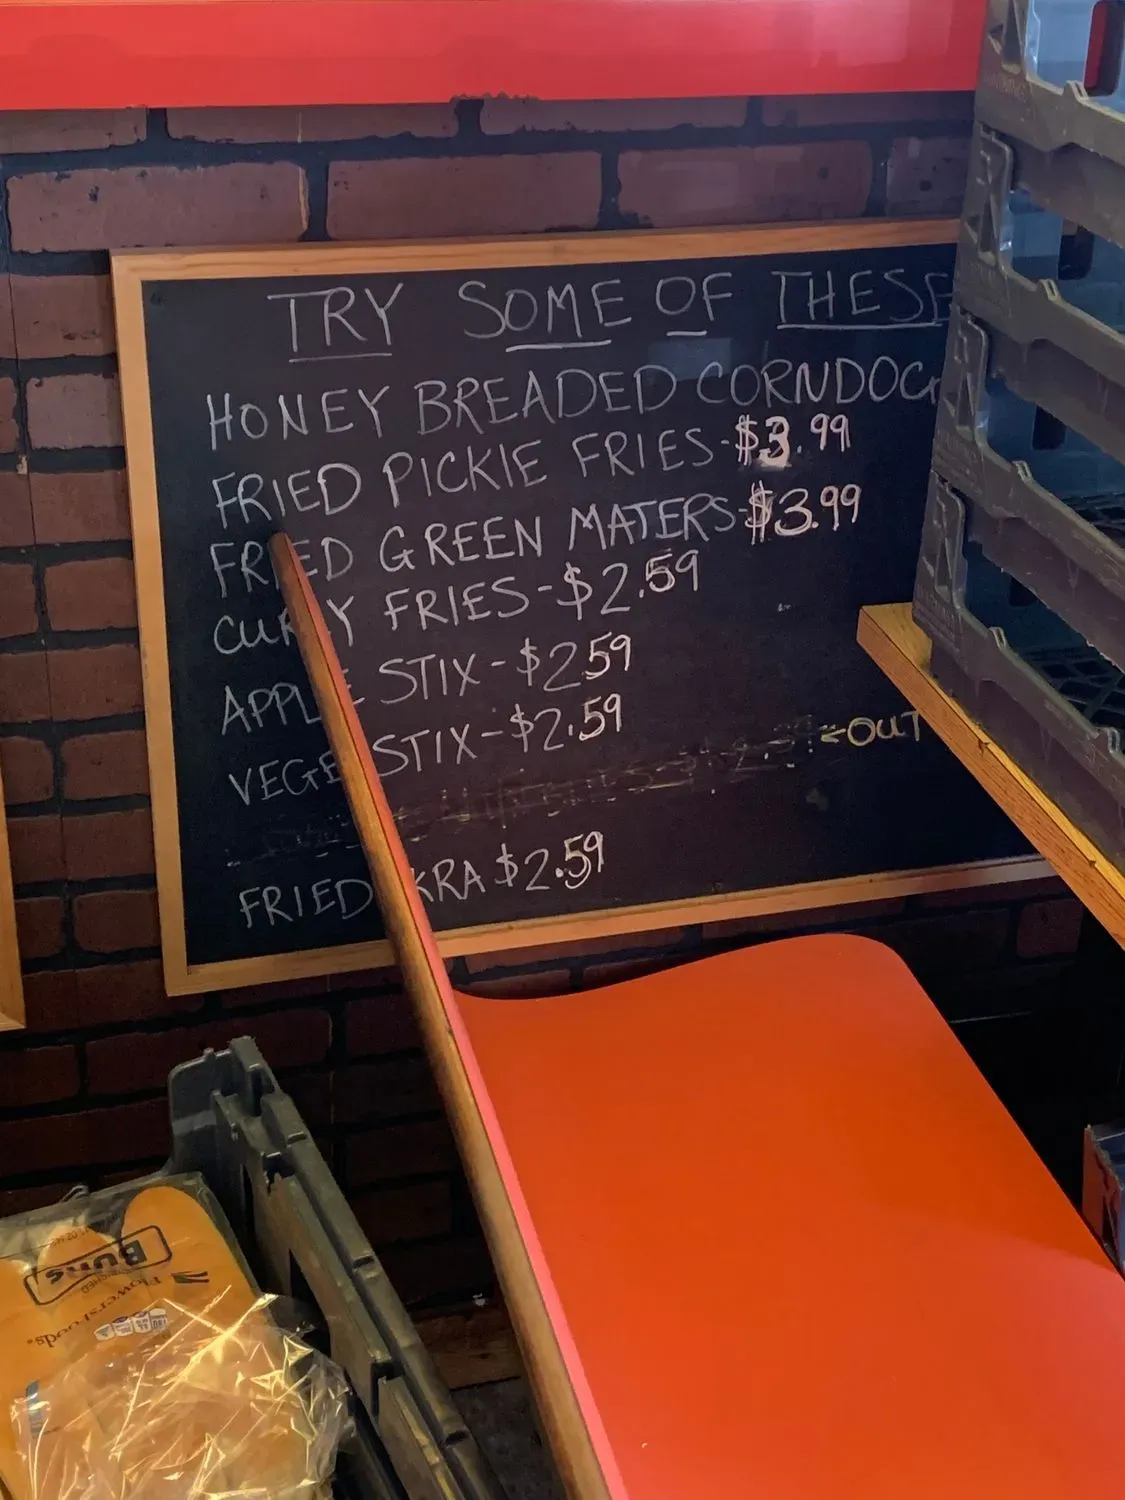 TRY SOME OF THESE
HONEY BREADED CORNDOG
FRIED PICKIE FRIES-$3.99
FRIED GREEN MATERS-$3.99
CURLY FRIES-$2.59
APPLE STIX-$2.59
VEGE STIX-$2.59
←OUT
FRIED OKRA $2.59
Buns
Flowersfoods